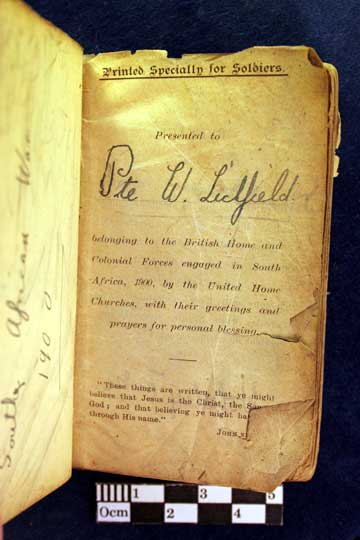 Printed Specially for Soldiers.
Presented to
Pte W. Lidfield
belonging to the British Home and
Colonial Forces engaged in South
Africa, 1900, by the United Home
Churches, with their greetings and
prayers for personal blessing.
"These things are written, that ye might
believe that Jesus is the Christ, the
God; and that believing ye might
through His name."
JOHN
South African
1900
0cm 1 2 3 4 5